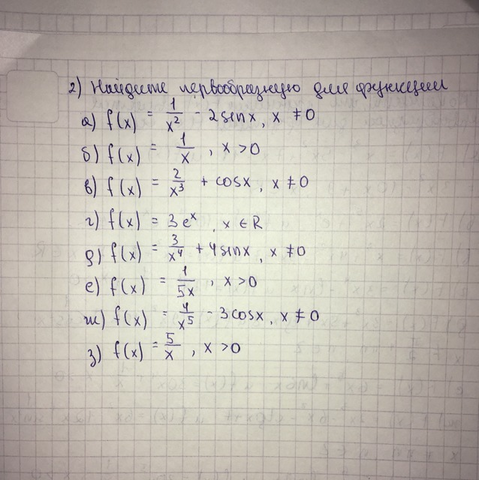 2) Найдите первообразную для функции
а) f(x) = 1/x² - 2sinx, x ≠ 0
б) f(x) = 1/x, x > 0
в) f(x) = 2/x³ + cosx, x ≠ 0
г) f(x) = 3eˣ, x ∈ R
д) f(x) = 3/x⁴ + 4sinx, x ≠ 0
е) f(x) = 1/5x, x > 0
ж) f(x) = 4/x⁵ - 3cosx, x ≠ 0
з) f(x) = 5/x, x > 0